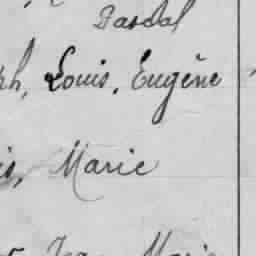 Pascal
ph, Louis, Eugène
is, Marie
Jean Marie